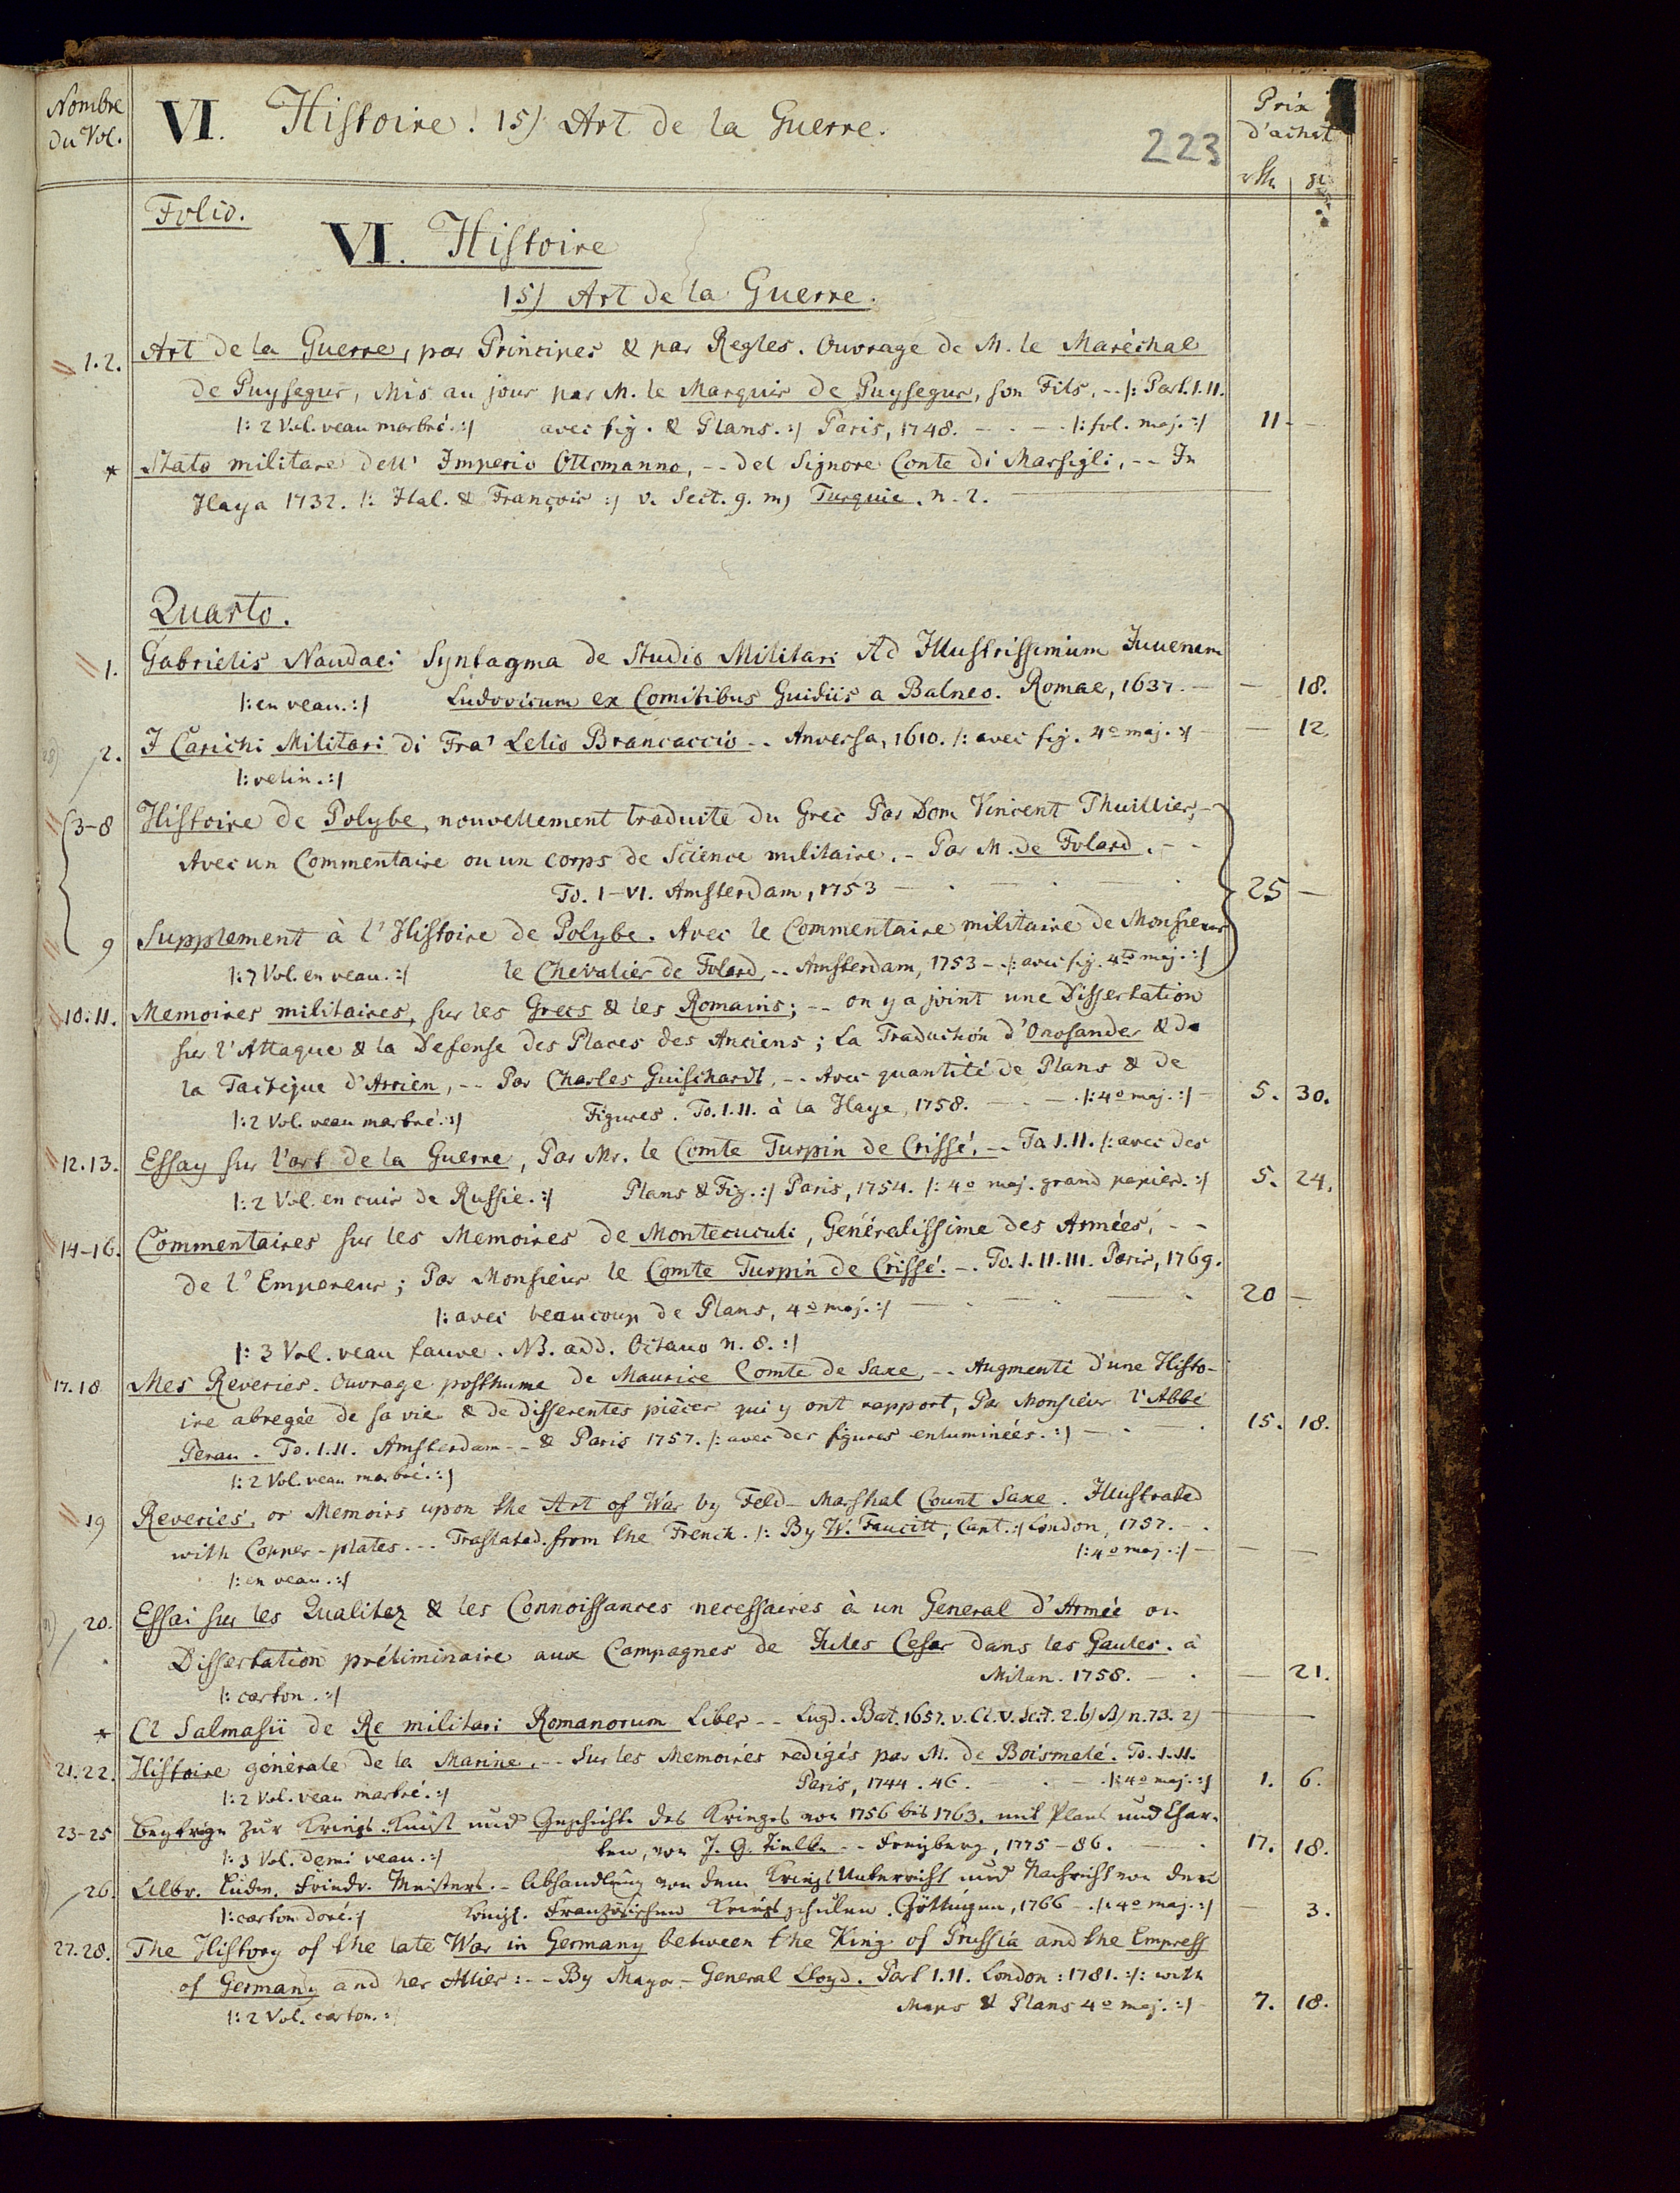 Nombre
du Vol.
VI. Histoire. 15) Art de la Guerre.
223
Prix
d'achat
rth. gr.
Folio.
VI. Histoire
15) Art de la Guerre.
1.2. Art de la Guerre, par Principes & par Regles. Ouvrage de M. le Maréchal
de Puysegur, Mis au jour par M. le Marquis de Puysegur, son Fils, -- /: Part. I. II.
/: 2 Vol. veau marbré. :/ avec fig. & Plans. :/ Paris, 1748. - - - /: fol. maj. :/ 11 -
* Stato militare dell' Imperio Ottomanno, -- del Signore Conte di Marsigli, -- In
Haya 1732. /: Ital. & François :/ v. Sect. 9. m) Turquie. n. 2.
Quarto.
1. Gabrielis Naudaei Syntagma de Studio Militari Ad Illustrissimum Juvenem
/: en veau. :/ Ludovicum ex Comitibus Guidiis a Balneo. Romae, 1637. - - 18.
2. I Carichi Militari di Fra' Lelio Brancaccio -- Anversa, 1610. /: avec fig. 4o maj. :/ - 12.
/: velin. :/
3-8 Histoire de Polybe, nouvellement traduite du Grec Par Dom Vincent Thuillier, -
Avec un Commentaire ou un corps de Science militaire. - Par M. de Folard. - -
To. I-VI. Amsterdam, 1753 - . - . - . 25 -
9 Supplement à l'Histoire de Polybe. Avec le Commentaire militaire de Monsieur
/: 7 Vol. en veau. :/ le Chevalier de Folard, -- Amsterdam, 1753 - /: avec fig. 4to maj. :/
10. 11. Memoires militaires, sur les Grecs & les Romains; -- on y a joint une Dissertation
sur l'Attaque & la Defense des Places des Anciens; La Traduction d'Onosander & de
la Tactique d'Arrien, -- Par Charles Guischardt, -- Avec quantité de Plans & de
/: 2 Vol. veau marbré. :/ Figures. To. I. II. à la Haye, 1758. - - - /: 4o maj. :/ - 5. 30.
12. 13. Essay sur l'art de la Guerre, Par Mr. le Comte Turpin de Crissé, -- To I. II. /: avec des
/: 2 Vol. en cuir de Russie. :/ Plans & Fig. :/ Paris, 1754. /: 4o maj. grand papier. :/ 5. 24.
14-16. Commentaires sur les Memoires de Montecuculi, Généralissime des Armées, - -
de l'Empereur; Par Monsieur le Comte Turpin de Crissé. -. To. I. II. III. Paris, 1769.
/: avec beaucoup de Plans, 4o maj. :/ - . - . - . 20 -
/: 3 Vol. veau fauve. NB. add. Octavo n. 8. :/
17. 18 Mes Reveries. Ouvrage posthume de Maurice Comte de Saxe, -- Augmenté d'une Histo-
ire abregée de sa vie & de differentes pièces qui y ont rapport, Par Monsieur l'Abbé
Perau. To. I. II. Amsterdam -- & Paris 1757. /: avec des figures enluminées. :/ - . . 15. 18.
/: 2 Vol. veau marbré. :/
19 Reveries, or Memoirs upon the Art of War by Feld-Marshal Count Saxe. Illustrated
with Copper-plates. -- Traslated from the French. /: By W. Faucitt, Capt. :/ London, 1757. -.
/: en veau. :/ /: 4o maj. :/ - - -
20. Essai sur les Qualitez & les Connoissances necessaires à un General d'Armée ou
Dissertation préliminaire aux Campagnes de Jules Cesar dans les Gaules. à
/: carton. :/ Milan. 1758. - . - 21.
* Cl Salmasii de Re militari Romanorum Liber -- Lugd. Bat. 1657. v. Cl. V. Sect. 2. b) B) n. 73. 2)
21. 22. Histoire générale de la Marine, -- Sur les Memoires redigés par M. de Boismelé. To. I. II.
/: 2 Vol. veau marbré. :/ Paris, 1744. 46. - . - . /: 4o maj. :/ 1. 6.
23-25 Beytrage zur Kriegs-Kunst und Geschichte des Krieges von 1756 bis 1763. mit Plans und Char-
/: 3 Vol. demi veau. :/ ten, von J. G. Tielke -- Freyberg, 1775-86. - . 17. 18.
26. Albr. Ludw. Friedr. Meisters. - Abhandlung von dem Kriegs Unterricht und Nachricht von den
/: carton doré. :/ Königl. Französischen Kriegsschulen. Göttingen, 1766 -. /: 4o maj. :/ - 3.
27. 28. The History of the late War in Germany between the King of Prussia and the Empress
of Germany and her Allies: -- By Mayor-General Lloyd. Part I. II. London: 1781. :/: with
/: 2 Vol. carton. :/ Maps & Plans 4o maj. :/ - 7. 18.